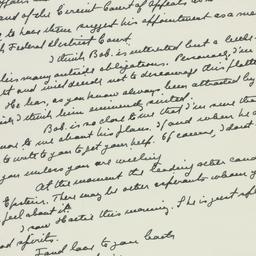 and of the Circuit Court of Appeals
to have them suggest his appointment as a me
Federal District Court.
I think Bob is interested but a little
his many outside obligations. Personally, I've
yet and will decide not to discourage this
He has, as you know always been attracted by
I think been eminently suited.
Bob is so close to me that I'm sure that
more to me about his plans. If and when he
to write to you to get your help. Of course, I don't
you unless you are willing
At the moment the leading other cand
Epstein. There may be other aspirants whom y
feel about it.
I saw Hattie this morning. She is just
good spirits.
Fond love to you both